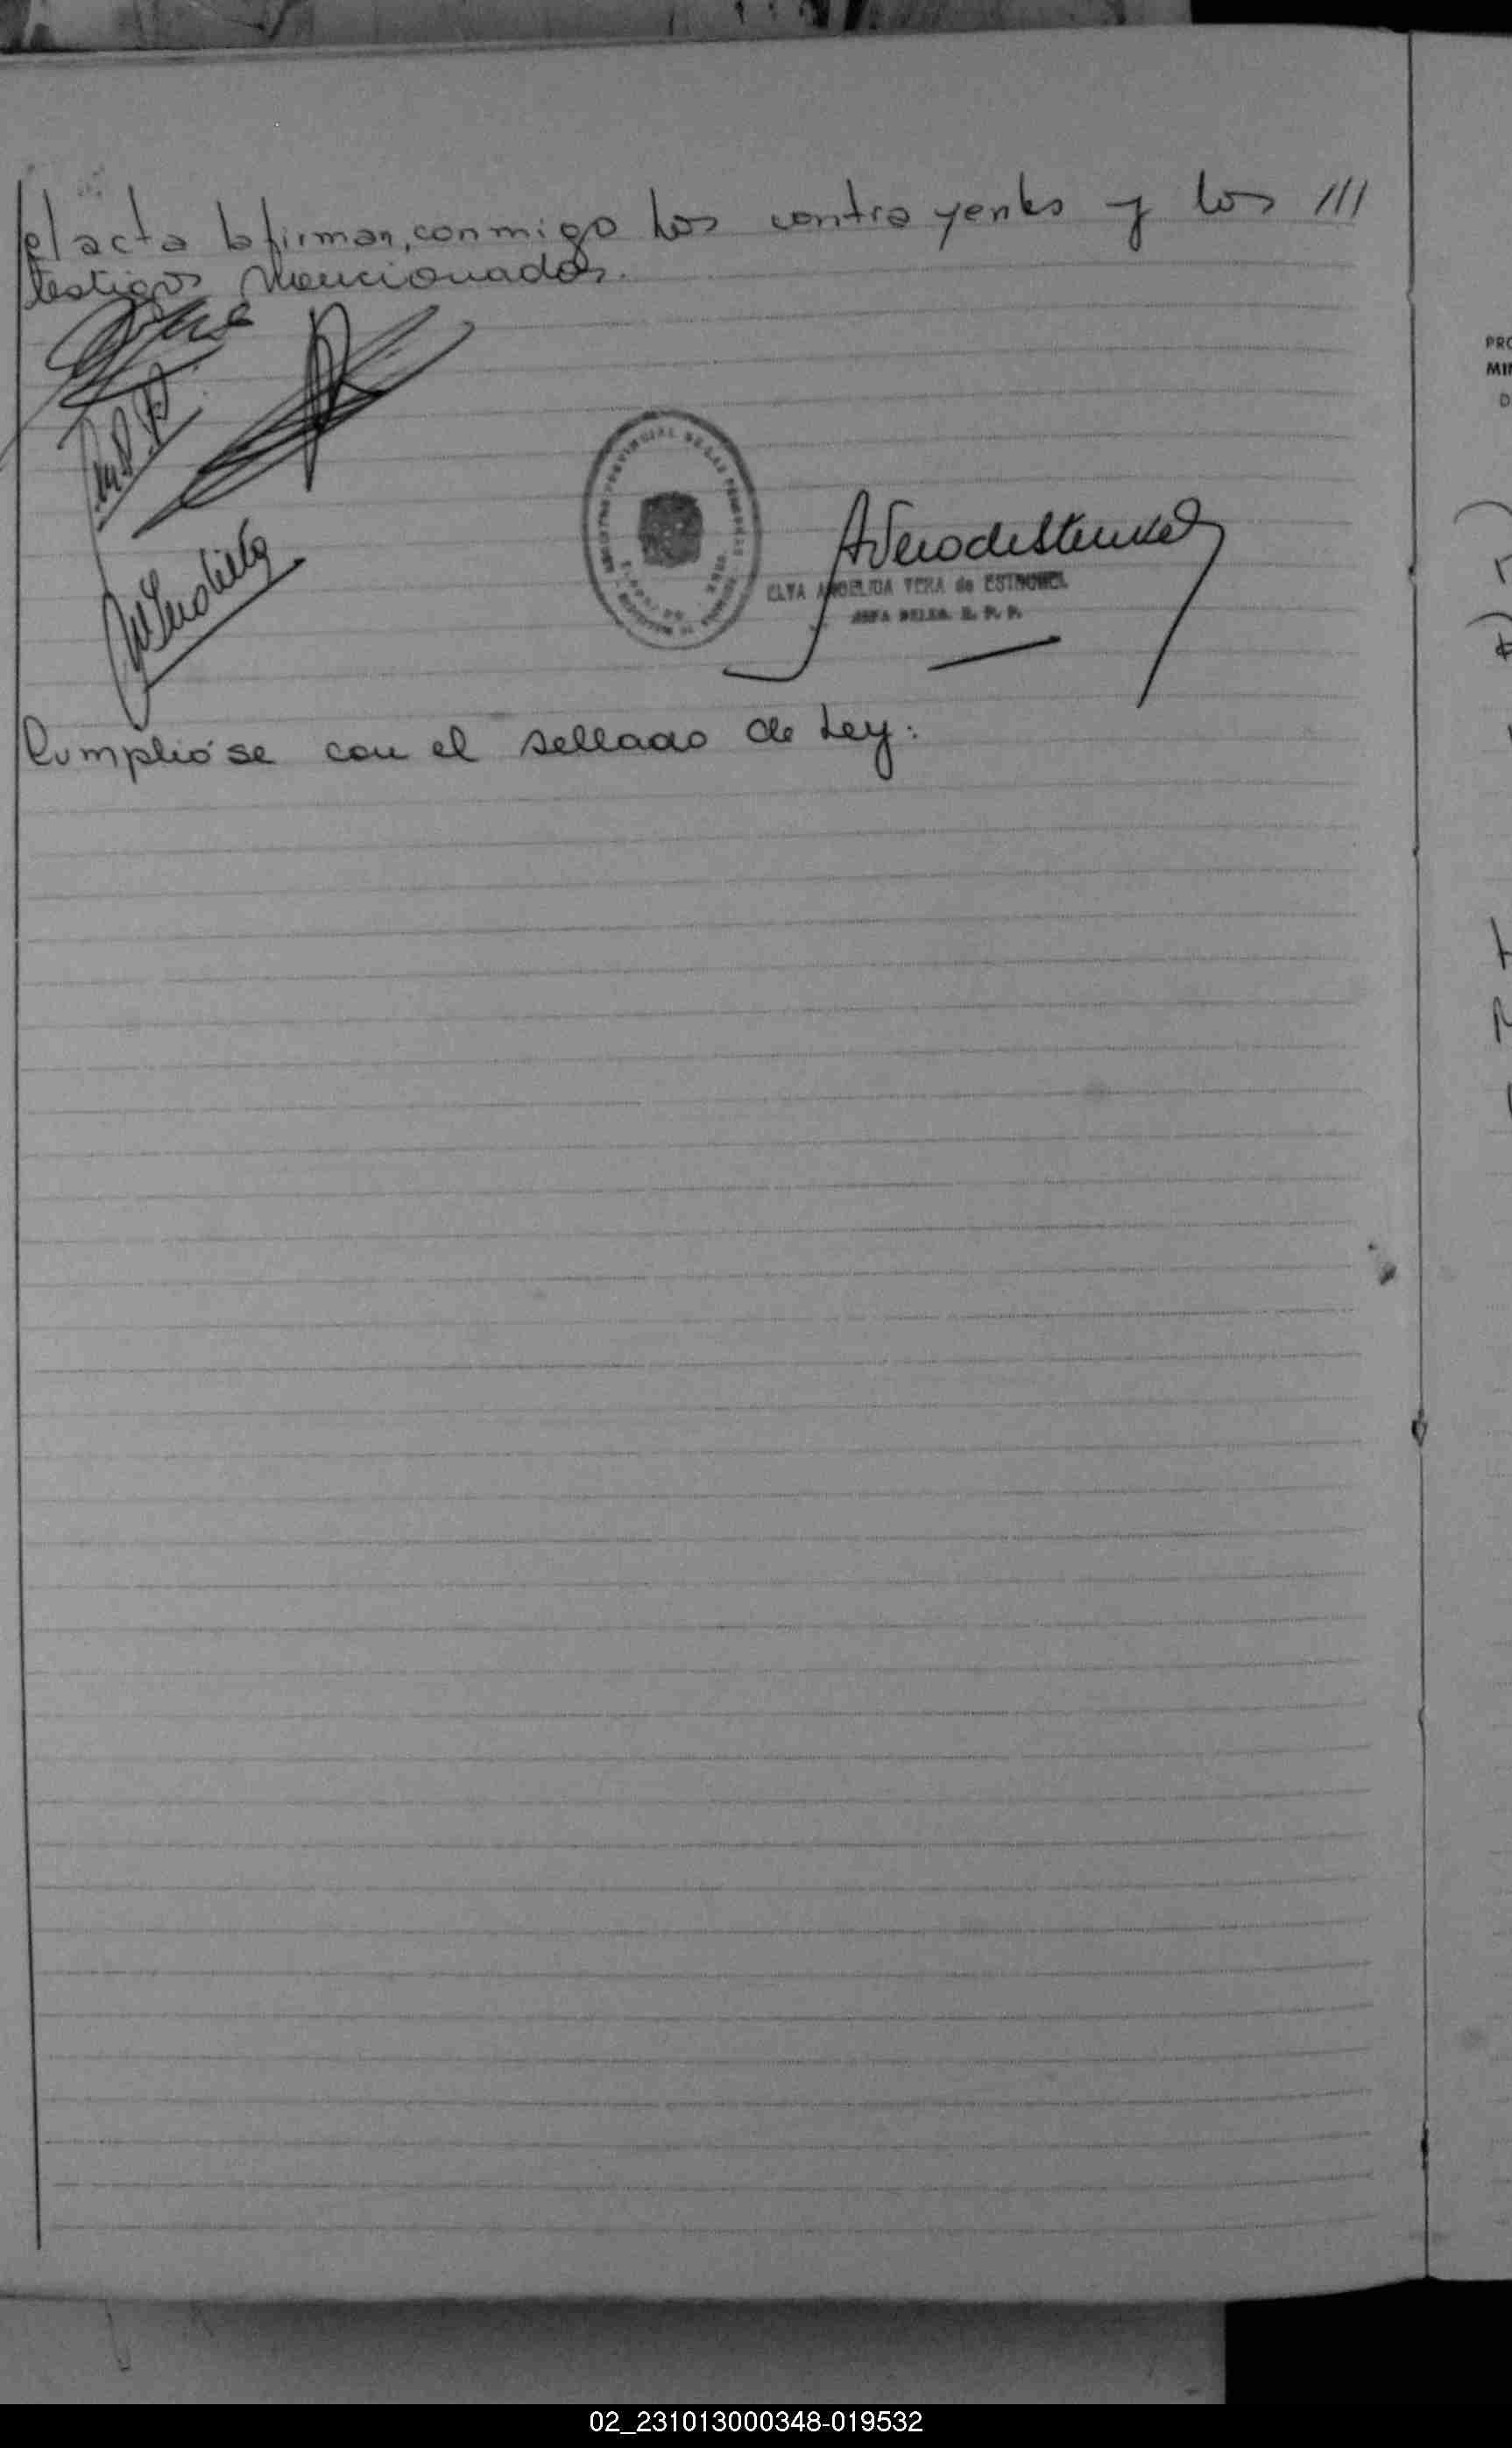 el acta la firman, conmigo los contrayentes y los ///
testigos mencionados.
REGISTRO PROVINCIAL DE LAS PERSONAS
ELVA ANGELICA VERA de ESTROHEL
JEFA DELEG. R. P. P.
Cumplióse con el sellado de Ley:
PRO
MIN
D
02_231013000348-019532